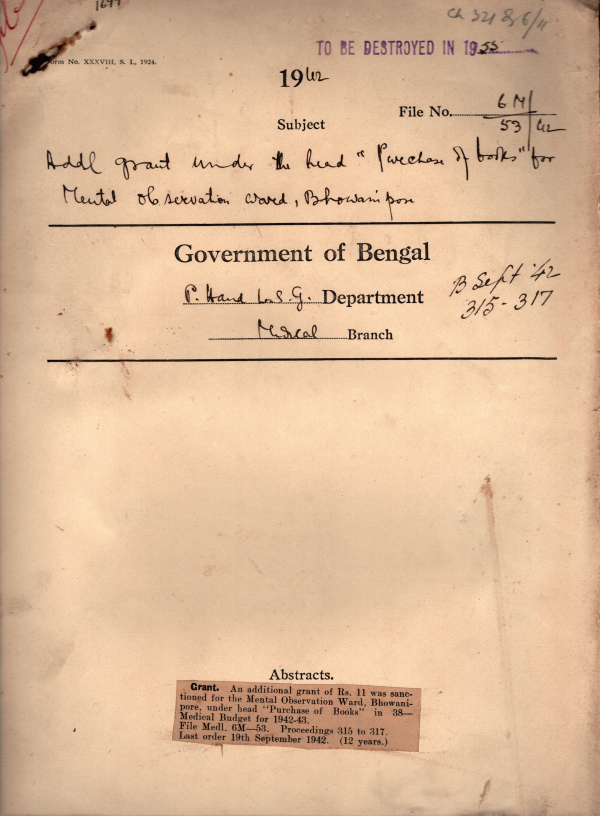 1697
Ch 321 8/6/11
TO BE DESTROYED IN 1955
Form No. XXXVIII, S. I., 1924.
1942
File No. 6M/53/42
Subject
Addl grant under the head "Purchase of books" for
Mental observation ward, Bhowanipore
Government of Bengal
P. H and L. S. G. Department
Medical Branch
B Sept '42
315-317
Abstracts.
Grant. An additional grant of Rs. 11 was sanc-
tioned for the Mental Observation Ward, Bhowani-
pore, under head "Purchase of Books" in 38—
Medical Budget for 1942-43.
File Medl. 6M—53. Proceedings 315 to 317.
Last order 19th September 1942. (12 years.)